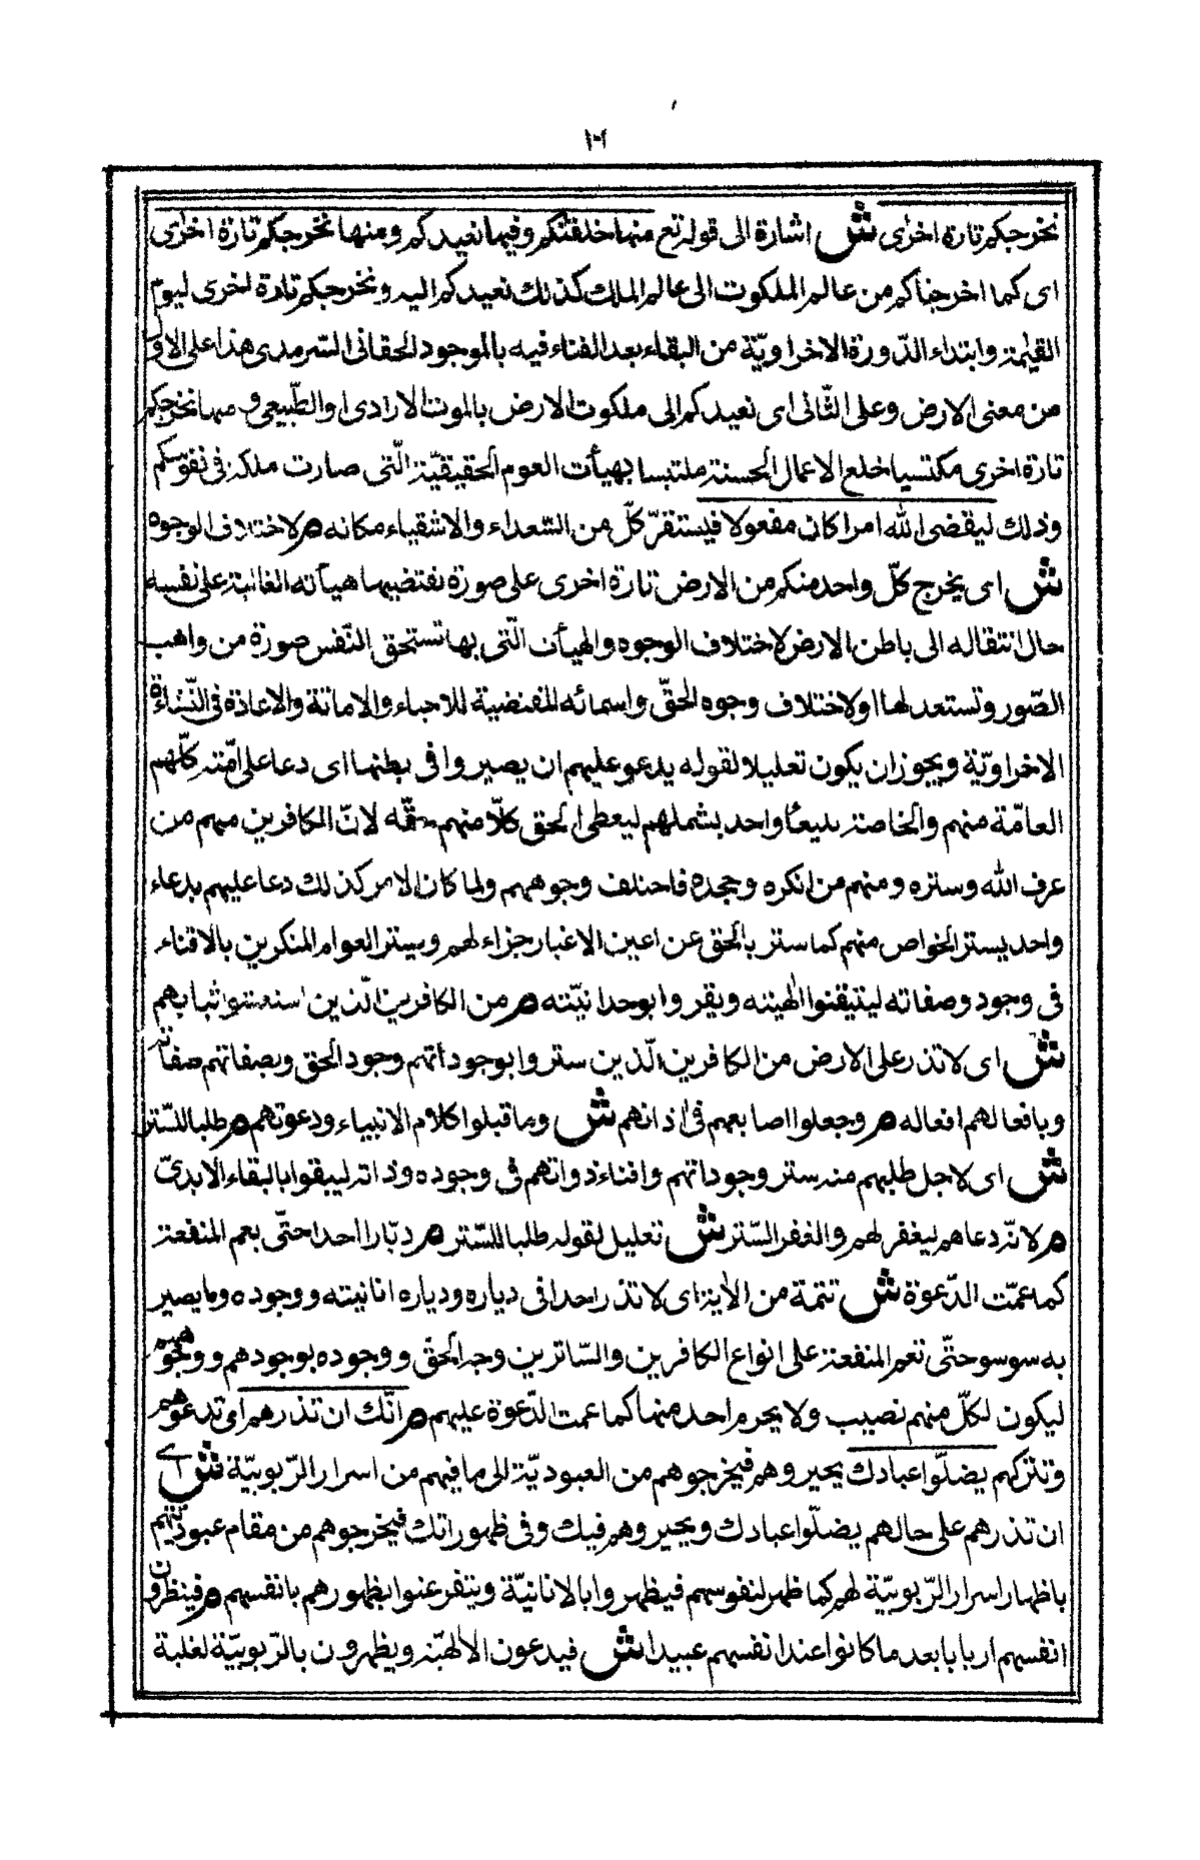 ١٠٦
نخرجكم تارة اخرى ش اشارة الى قوله تع منها خلقنكم وفيها نعيدكم ومنها نخرجكم تارة اخرى
اى كما اخرجناكم من عالم الملكوت الى عالم الملك كذلك نعيدكم اليه ونخرجكم تارة اخرى ليوم
القيمة وابتداء الدّورة الاخراويّة من البقاء بعد الفناء فيه بالموجود الحقانى السّرمدى هذا على الاوّل
من معنى الارض وعلى الثّانى اى نعيدكم الى ملكوت الارض بالموت الارادى او الطّبيعى و منها نخرجكم
تارة اخرى مكتسيا خلع الاعمال الحسنة ملتبسا بهيأت العوم الحقيقيّة الّتى صارت ملكة فى نفوسكم
وذلك ليقضى الله امرا كان مفعولا فيستقرّ كلّ من السّعداء والاشقياء مكانه م لاختلاف الوجوه
ش اى يخرج كلّ واحد منكم من الارض تارة اخرى على صورة يقتضيها هيأته الغالبة على نفسه
حال انتقاله الى باطن الارض لاختلاف الوجوه والهيأت الّتى بها تستحق النّفس صورة من واهب
الصّور وتستعد لها اولاختلاف وجوه الحقّ واسمائه المقتضية للاحياء والاماتة والاعادة فى النّشاءة
الاخراويّة ويجوز ان يكون تعليلا لقوله يدعو عليهم ان يصيروا فى بطنها اى دعا على امّته كلّهم
العامّة منهم والخاصة بدعاء واحد يشملهم ليعطى الحق كلّا منهم حقّه لانّ الكافرين منهم من
عرف الله وستره ومنهم من انكره وجحده فاختلف وجوههم ولما كان الامر كذلك دعا عليهم بدعاء
واحد يستر الخواص منهم كما ستر بالحق عن اعين الاغيار جزاء لهم ويستر العوام المنكرين بالافناء
فى وجود وصفاته ليتيقنوا الهيته ويقروا بوحدانيّته م من الكافرين الّذين استغشوا ثيابهم
ش اى لا تذر على الارض من الكافرين الّذين ستروا بوجوداتهم وجود الحق وبصفاتهم صفاته
وبافعالهم افعاله م وجعلوا اصابعهم فى اذانهم ش وما قبلوا كلام الانبياء ودعوتهم م طلبا للسّتر
ش اى لاجل طلبهم منه ستر وجوداتهم وافناء ذواتهم فى وجوده وذاته ليبقوا بالبقاء الابدىّ
م لانّه دعاهم ليغفر لهم والغفر السّتر ش تعليل لقوله طلبا للسّتر م ديّارا احدا حتّى يعم المنفعة
كما عمّت الدّعوة ش تتمة من الاية اى لا تذر احدا فى دياره ودياره انانيته ووجوده وما يصير
به سوسو حتّى تعم المنفعة على انواع الكافرين والسّاترين وجه الحقّ ووجوده بوجودهم ووجوههم
ليكون لكلّ منهم نصيب ولا يحرم احد منها كما عمت الدّعوة عليهم م انّك ان تذرهم اى تدعوهم
وتتركهم يضلّوا عبادك يحيروهم فيخرجوهم من العبوديّة الى ما فيهم من اسرار الرّبوبيّة ش اى
ان تذرهم على حالهم يضلّوا عبادك ويحيروهم فيك وفى ظهوراتك فيخرجوهم من مقام عبوديّتهم
باظهار اسرار الرّبوبيّة لهم كما ظهر لنفوسهم فيظهروا بالانانيّة ويتفرعنوا بظهورهم بانفسهم م فينظرون
انفسهم اربابا بعد ما كانوا عند انفسهم عبيدا ش فيدعون الالهيّة ويظهرون بالرّبوبيّة لغلبة